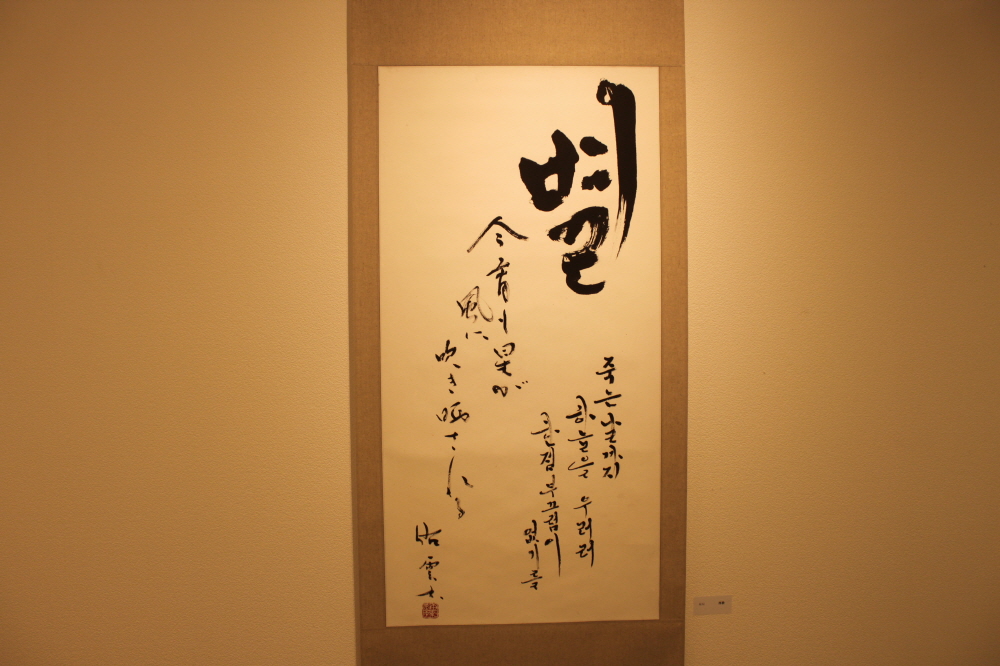 별
죽는 날까지
하늘을 우러러
한 점 부끄럼이
없기를
今宵も星が
風に
吹き晒される